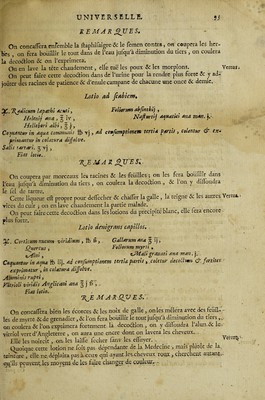 UNIVERSELLE. 95
REMARQUES.
On concassera ensemble la staphisaigre & le semen contra, on coupera les herbes
, on fera bouillir le tout dans de l'eau jusqu'à diminution du tiers, on coulera
la decoction & on l'exprimera.
On en lave la tête chaudement, elle tuë les poux & les morpions. Vertus.
On peut faire cette decoction dans de l'urine pour la rendre plus forte & y adjoûter
des racines de patience & d'enule campane de chacune une once & demie.
Lotio ad scabiem,
℞. Radicum lapathi acuti, Foliorum absinthii,
Helenii ana, ℥ iv, Nasturtii aquatici ana man. j.
Hellebori albi, ℥ j,
Coquantur in aqua communis ℔ vj, ad consumptionem tertiæ partis, colentur & exprimantur
in colatura dissolve.
Salis tartari, ʒ vj,
Fiat lotio.
REMARQUES.
On coupera par morceaux les racines & les feüilles; on les fera bouillir dans
l'eau jusqu'à diminution du tiers, on coulera la decoction, & l'on y dissoudra
le sel de tartre.
Cette liqueur est propre pour dessecher & chasser la galle, la teigne & les autres Vertus.
vices du cuir; on en lave chaudement la partie malade.
On peut faire cette decoction dans les lotions du précipité blanc, elle sera encore
plus forte.
Lotio denigrans capillos.
℞. Corticum nucum viridium, ℔ ß, Gallarum ana ℥ ij,
Quercus, Foliorum myrti,
Alni, Mali granati ana man. j.
Coquantur in aqua ℔ iij. ad consumptionem tertiæ partis, coletur decoctio & fortiter
exprimatur, in colatura dissolve.
Aluminis rupei,
Vitrioli viridis Anglicani ana ℥ j ß.
Fiat lotio.
REMARQUES.
On concassera bien les écorces & les noix de galle, on les mêlera avec des feüilles
de myrte & de grenadier, & l'on fera bouillir le tout jusqu'à diminution du tiers,
on coulera & l'on exprimera fortement la decoction, on y dissoudra l'alun & le
vitriol vert d'Angleterre, on aura une encre dont on lavera les cheveux.
Elle les noircit, on les laisse secher sans les essuyer. Vertus.
Quoique cette lotion ne soit pas dépendante de la Medecine, mais plûtôt de la
teinture, elle ne déplaira pas à ceux qui ayant les cheveux roux, cherchent autant
qu'ils peuvent les moyens de les faire changer de couleur.